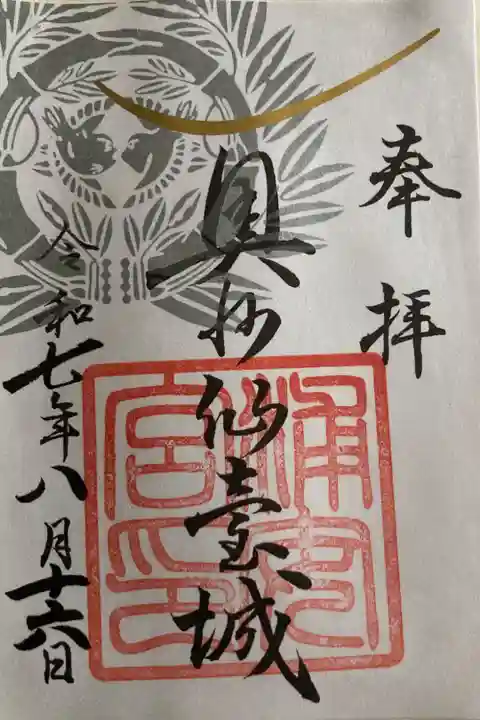 奉拝
奥州仙臺城
浦安
宮印
令和七年八月十六日